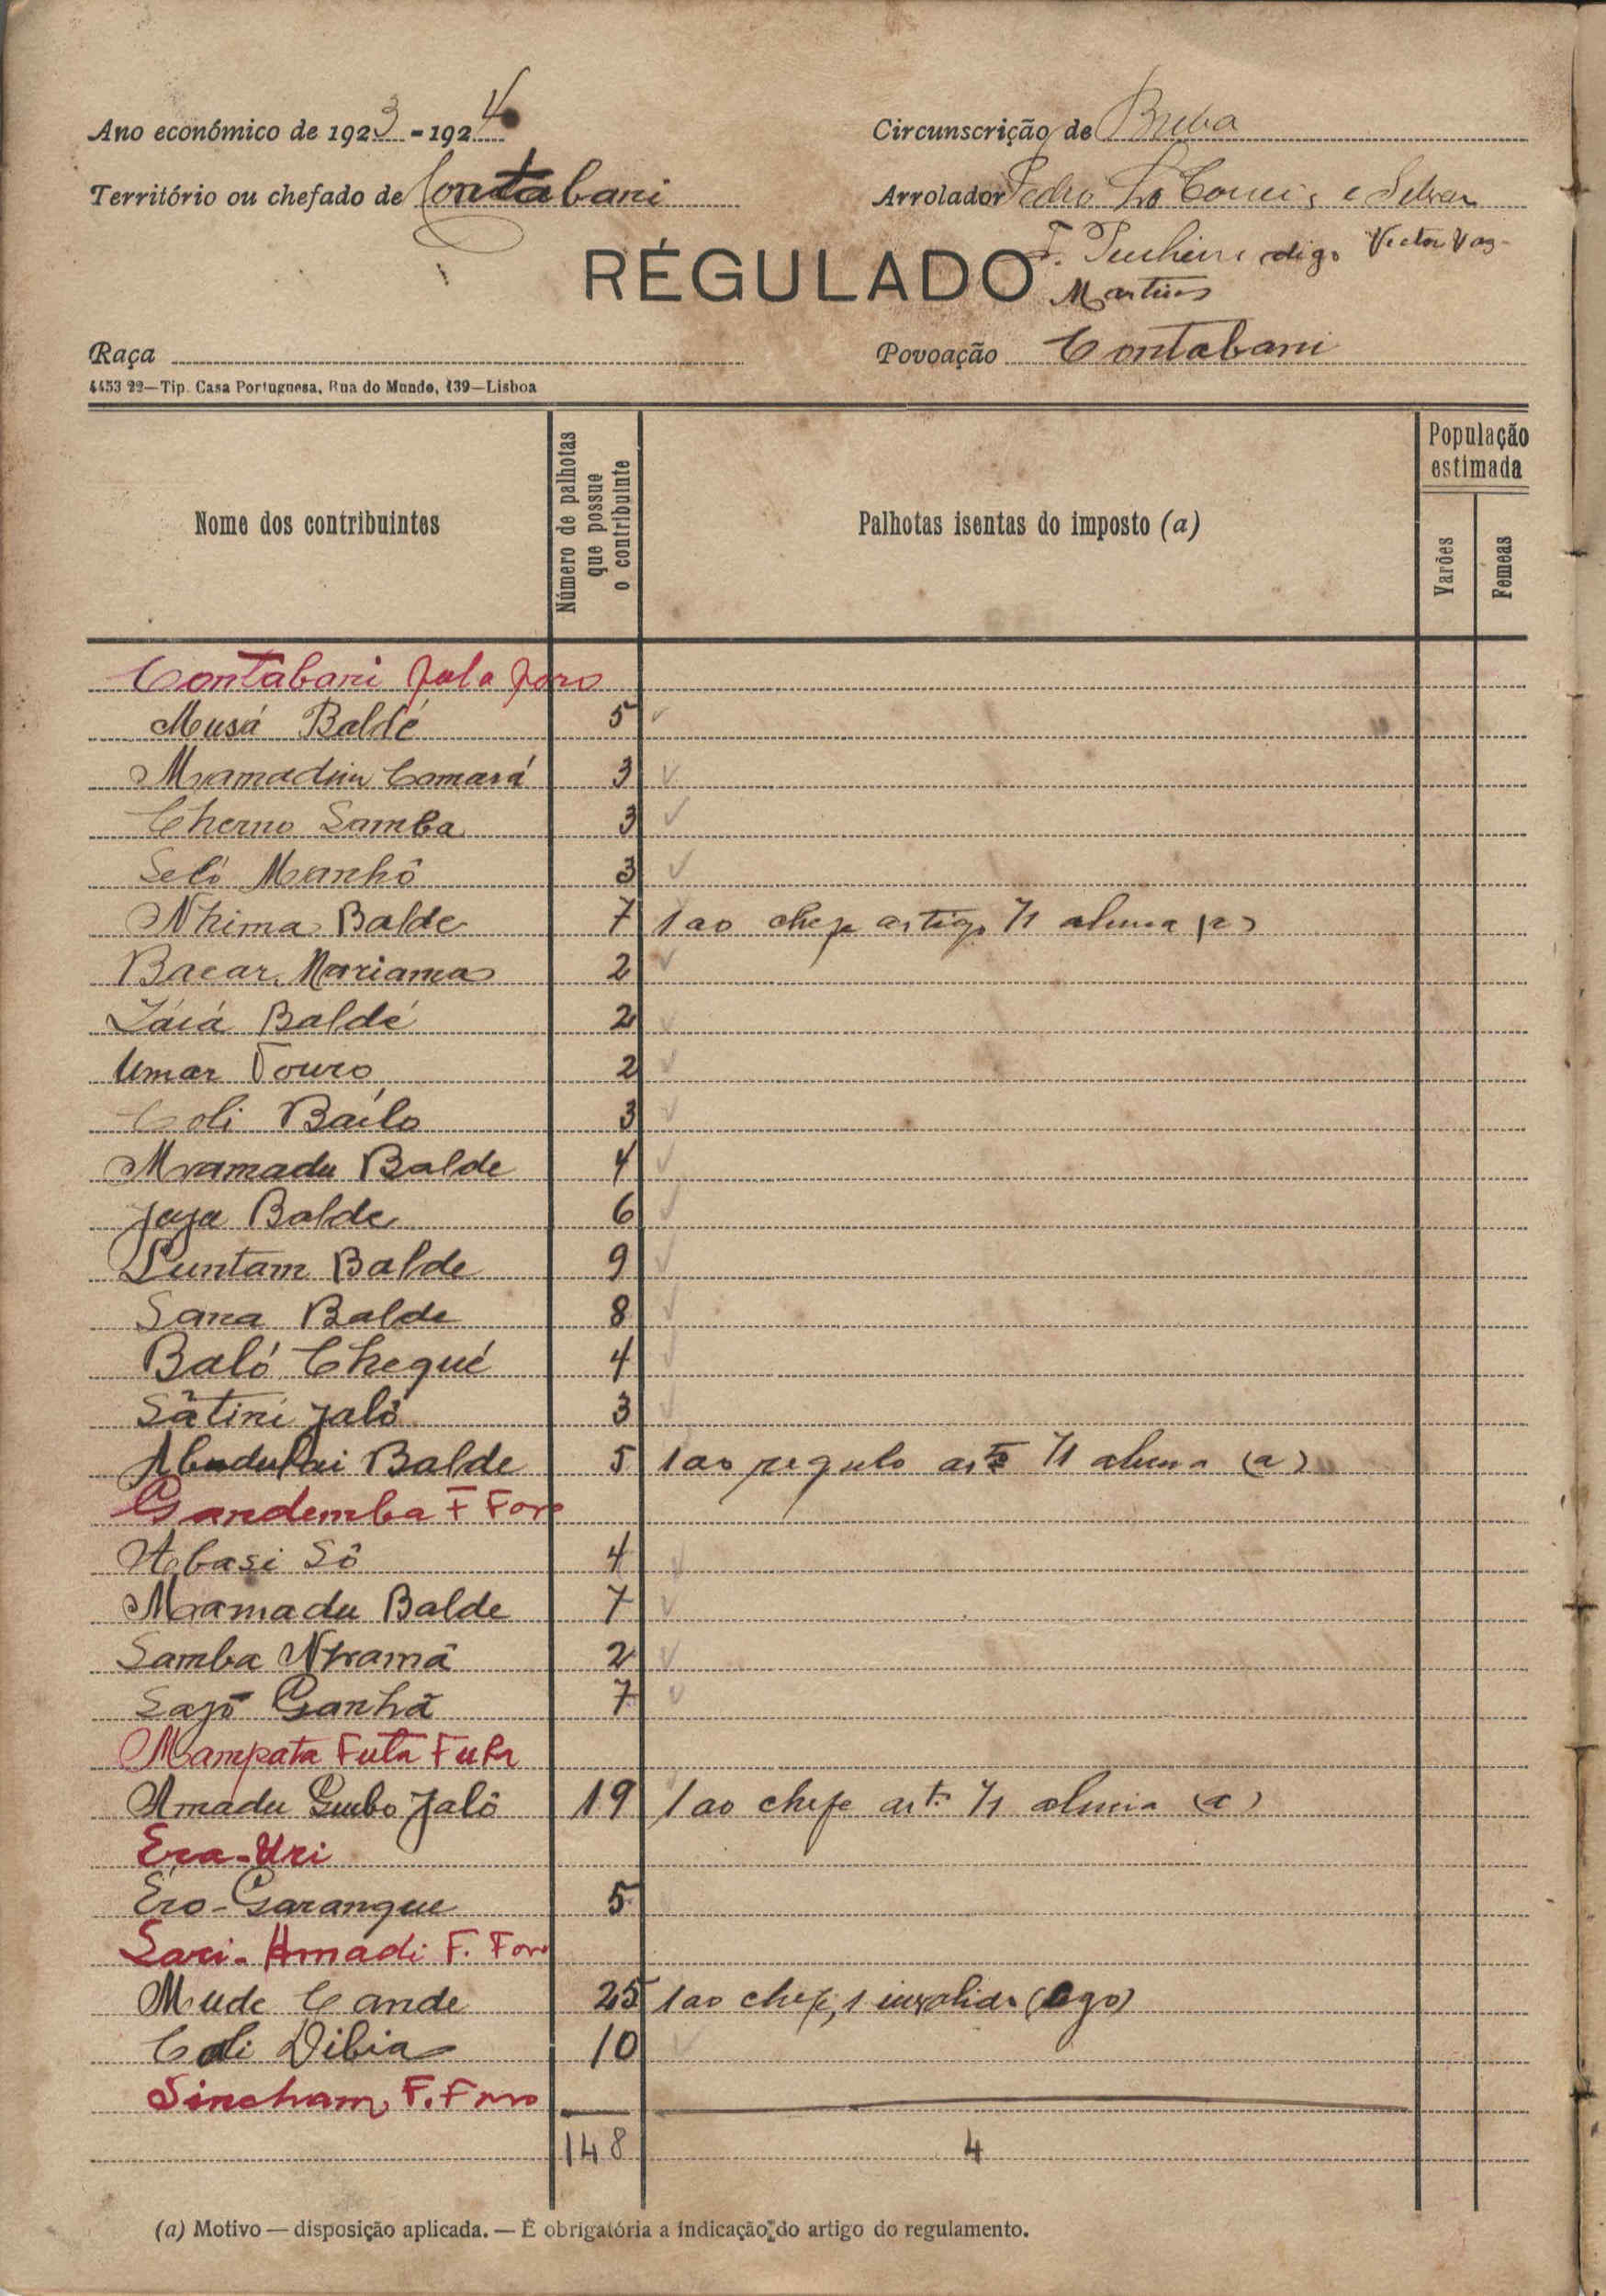 Ano económico de 1923-1924
Circunscrição de Buba
Território ou chefado de Contabani
Arrolador Pedro e Silva
F. digo Victor Vaz
RÉGULADO
Martins
Raça
Povoação Contabani
4453 22—Tip. Casa Portuguesa, Rua do Mundo, 139—Lisboa
Nome dos contribuintes
Número de palhotas que possue o contribuinte
Palhotas isentas do imposto (a)
População estimada
Varões
Femeas
Contabani Fula Foro
Musá Baldé 5
Mamadú Camará 3
Cherno Samba 3
Seló Manhô 3
Nhima Balde 7 1 ao chefe artigo 71 alinea (a)
Bacar Mariama 2
Iáiá Baldé 2
Umar Touro 2
Coli Bailo 3
Mamadu Balde 4
Jaja Balde 6
Suntam Balde 9
Sana Balde 8
Baló Chequé 4
Sátiri Jaló 3
Abudulai Balde 5 1 ao regulo artº 71 alinea (a)
Gandemba F Foro
Abasi Sô 4
Mamadu Balde 7
Samba Nhamã 2
Sajo Ganhã 7
Mampata Futa Fula
Amadu Guebo Jaló 19 1 ao chefe artº 71 alinea (a)
Era-Uri
Ero-Garangue 5
Sari-Amadi F. Foro
Mude Cande 25 1 ao chefe, 1 invalido (ego)
Coli Dibia 10
Sincham F. Foro
148 4
(a) Motivo — disposição aplicada. — É obrigatória a indicação do artigo do regulamento.